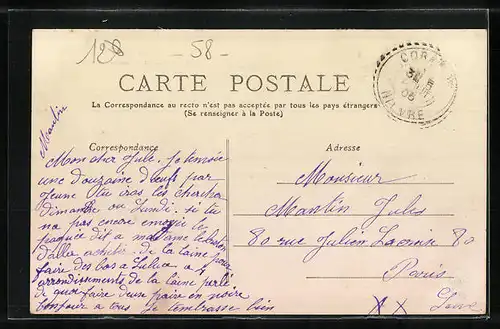 128 - 58 -
CARTE POSTALE
La Correspondance au recto n'est pas acceptée par tous les pays étrangers
(Se renseigner à la Poste)
Correspondance
Adresse
NIÈVRE
Mon cher Jule, je t'envoie
une douzaine d'œufs par
jeune tu iras les chercher
dimanche ou Lundi. si tu
na pas encore envoyé le
paquet dit a madame
dalla acheter de la laine pour
faire des bas a Julia a 4
arrondissements de la laine perlé
de quoi faire d'une paire en noire
bonjour a tous Je tembrasse bien
Monsieur
Martin Jules
80 rue Julien Lacroix 80
Paris
XX